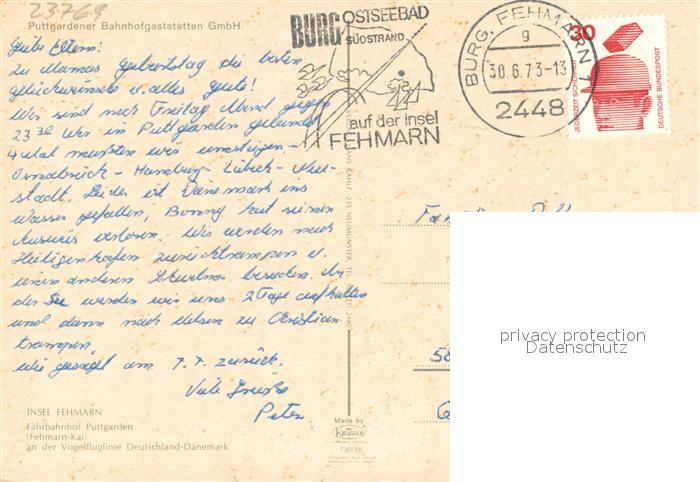 23769
Puttgardener Bahnhofgaststätten GmbH
Liebe Eltern!
Zu Mamas Geburtstag die besten
Glückwünsche u. alles Gute!
Wir sind noch Freitag Abend gegen
23 30 Uhr in Puttgarden gelandet
4 mal mußten wir umsteigen -
Osnabrück - Hamburg - Lübeck - Neu-
stadt. Leider ist Dänemark ins
Wasser gefallen, hat seinen
Ausweis verloren. Wir werden nach
Heiligenhafen zurücktrampen u.
einen anderen besuchen. An
der See werden wir uns 2 Tage aufhalten
und dann nach zu Christian
trampen.
Wie gesagt am 7.7. zurück.
Viele Grüße
Peter
INSEL FEHMARN
Fährbahnhof Puttgarden
(Fehmarn-Kai)
an der Vogelfluglinie Deutschland-Dänemark
BURG OSTSEEBAD
SÜDSTRAND
auf der Insel
FEHMARN
BURG, FEHMARN 1
g
30.6.73-13
2448
30
JEDERZEIT SICHERHEIT
DEUTSCHE BUNDESPOST
58
Made by
Krüger
730/16
privacy protection
Datenschutz